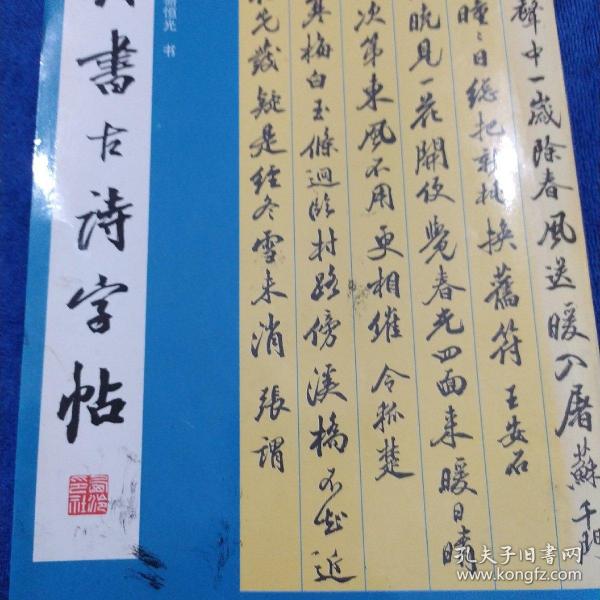 聲中一歲除春風送暖入屠蘇千門
曈〻日總把新桃換舊符 王安石
晓見一花開便覺春光四面来 暖日晴
次第東風不用更相催 令狐楚
寒梅白玉條迥臨村路傍溪橋不知近
水先發疑是经冬雪未消 張謂
恒光 书
書古詩字帖
西泠印社
孔夫子旧书网
www.kongfz.com